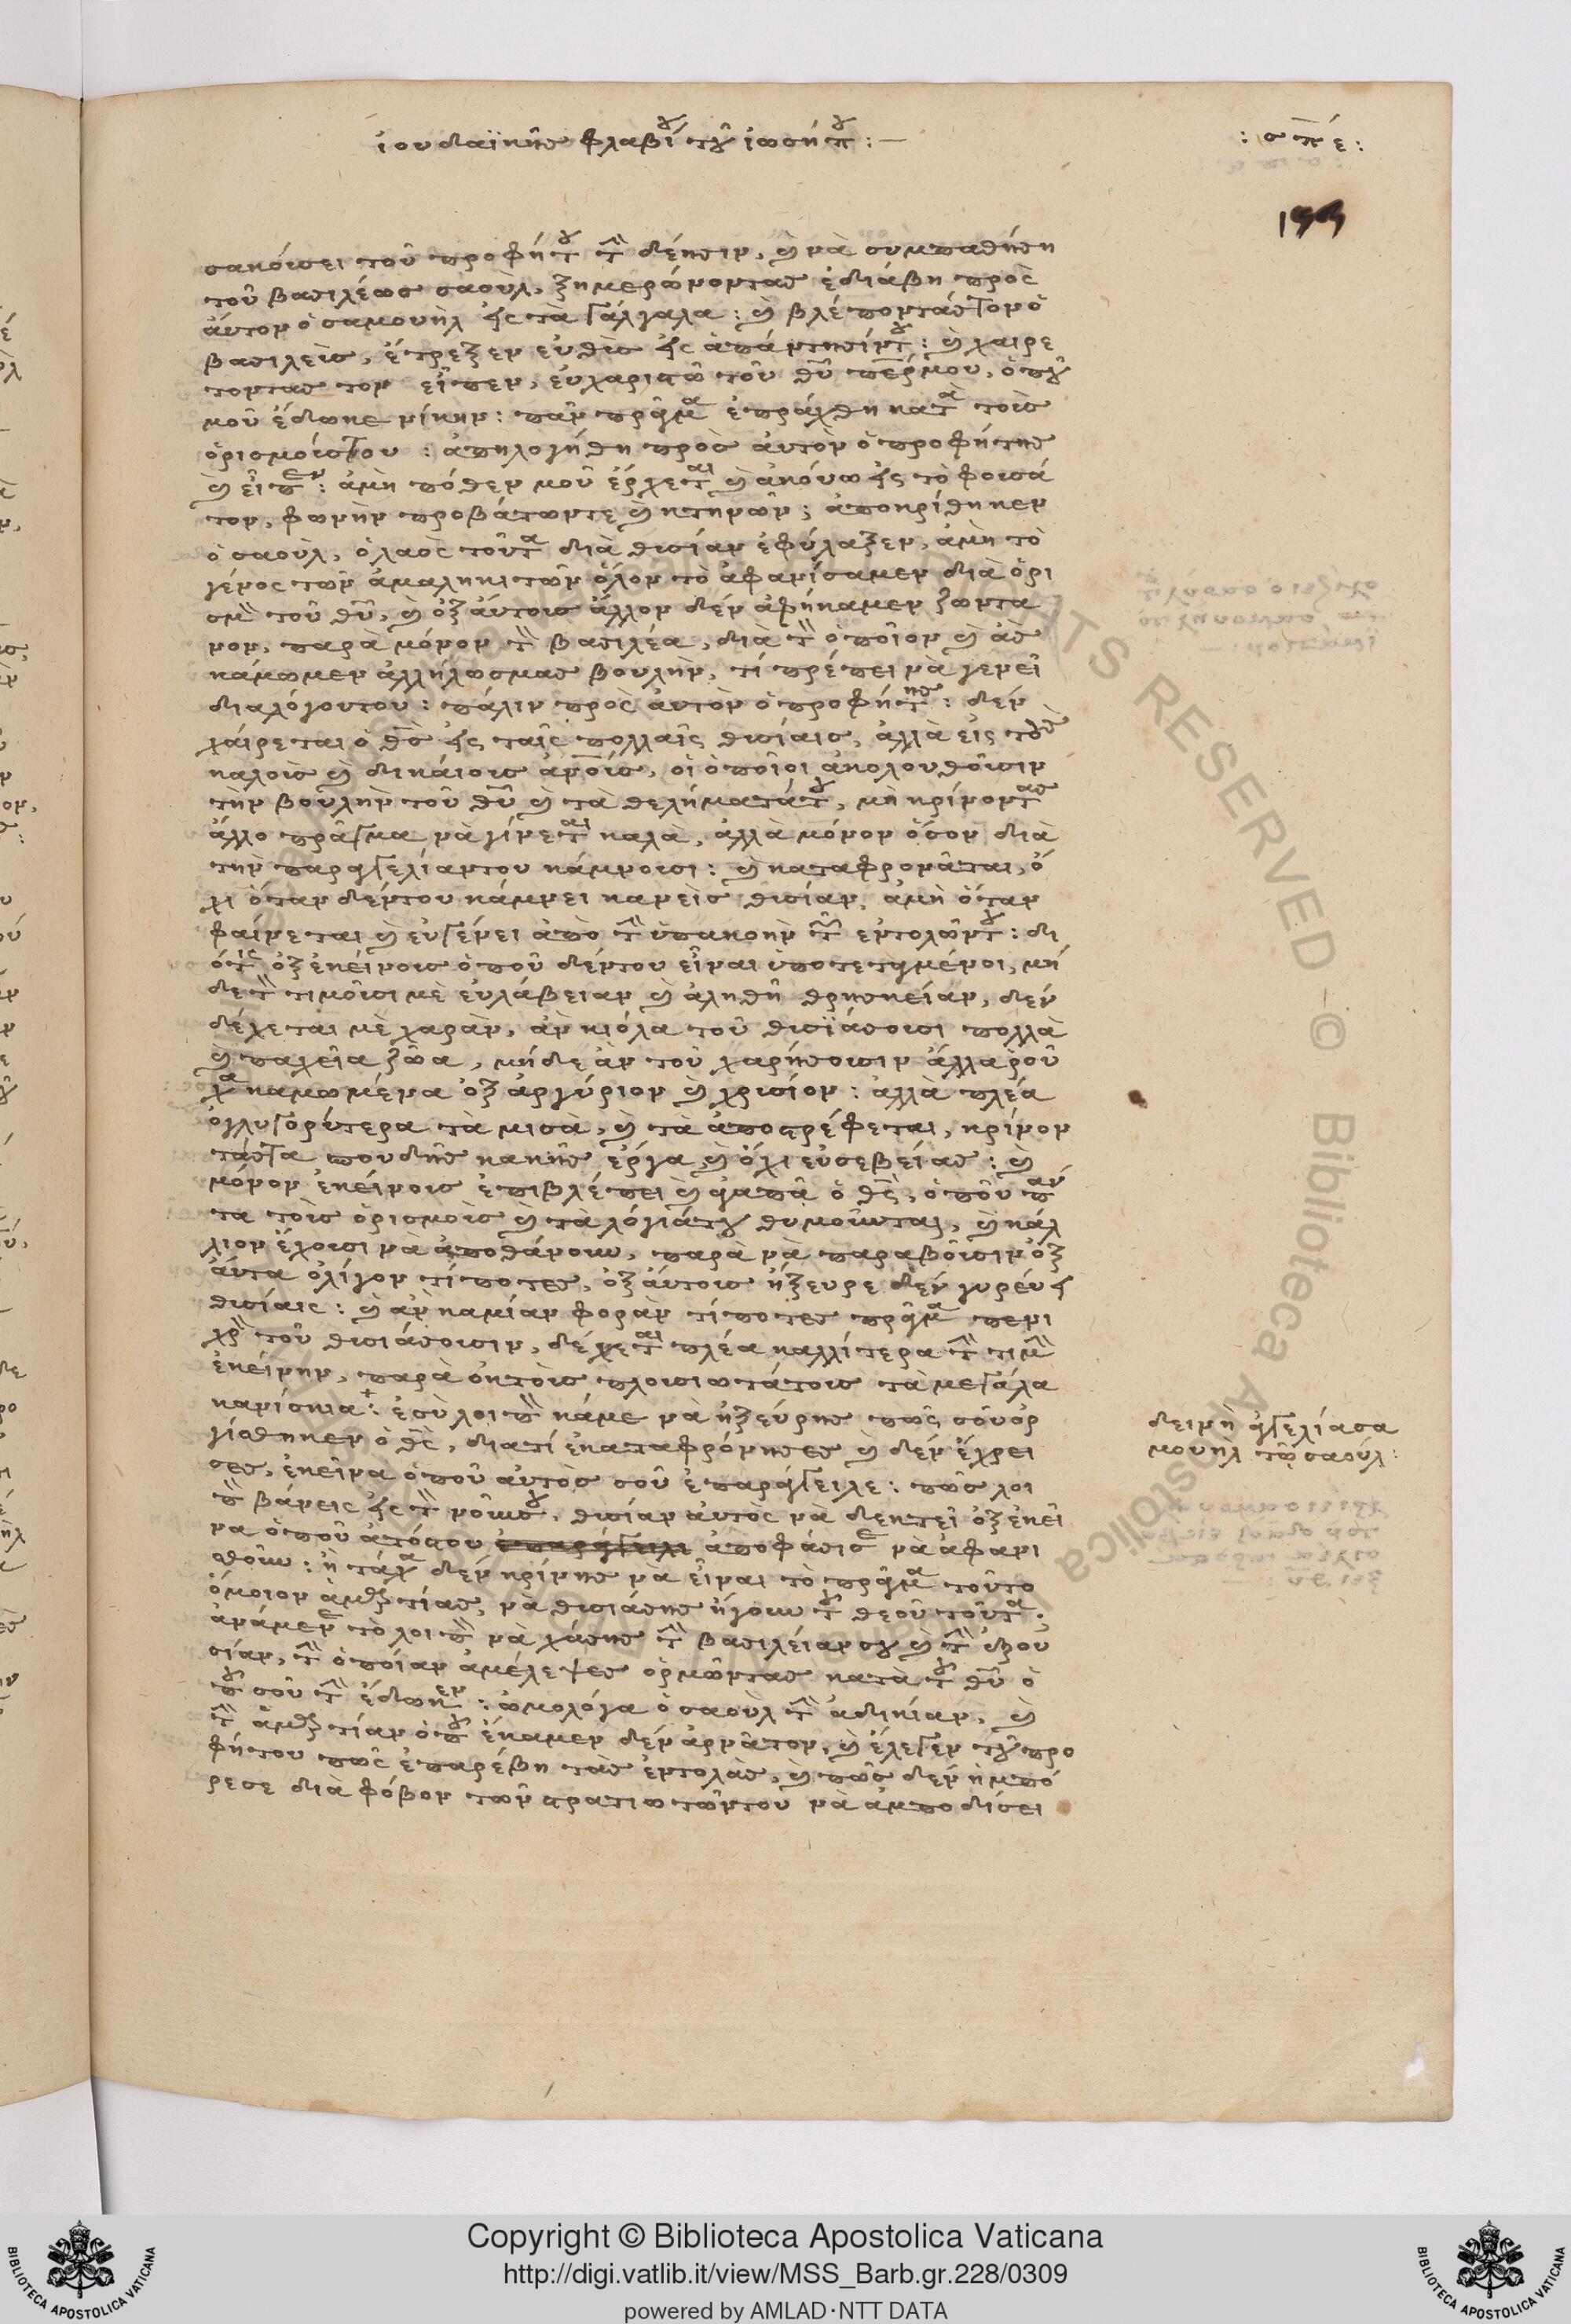 ἰουδαϊκῆς φλαβίου τοῦ ἰωσήπου :—
: σπέ :
199
σακούσει τοῦ προφήτου τὴν δέησιν, καὶ νὰ συμπαθήση
τοῦ βασιλέως σαοὺλ, ξημερώνοντας ἐδιάβη πρὸς
ἀυτὸν ὁ σαμουὴλ εἰς τὰ γάλγαλα : καὶ βλέποντάς τον ὁ
βασιλεὺς, ἔτρεξεν ἐυθὺς εἰς ἀπάντησίν του : καὶ χαιρε
τοντας τον εἶπεν, ἐυχαριστῶ τοῦ θῦ πατέρμου, ὁποῦ
μοῦ ἔδωκε νίκην : πᾶν πρᾶγμα ἐπράχθη κατὰ τοὺς
ὁρισμούς του : ἀπηλογήθη πρὸς ἀυτὸν ὁ προφήτης
καὶ εἶπεν : ἀμὴ πόθεν μοῦ ἔρχεται καὶ ἀκούω εἰς τὸ φουσά
τον, φωνὴν προβάτωντε καὶ κτηνῶν ; ἀποκρίθηκεν
ὁ σαοὺλ, ὁ λαὸς τοῦτα διὰ θυσίαν ἐφύλαξεν, ἀμὴ τὸ
γένος τῶν ἀμαληκιτῶν ὅλον τὸ ἀφανίσαμεν διὰ ὁρι
σμὸν τοῦ θῦ, καὶ ὀξ ἀύτους ἄλλον δὲν ἀφήκαμεν ζωντα
νον, παρὰ μόνον τὸν βασιλέα, διὰ τὸν ὁποῖον καὶ ἂς
κάμωμεν ἀλλήλωσμας βουλὴν, τί πρέπει νὰ γενεῖ
διαλόγουτου : πάλιν πρὸς ἀυτὸν ὁ προφήτης : δὲν
χάιρεται ὁ θς εἰς ταῖς πολλαῖς θυσίαις, ἀλλὰ εἰς τοὺς
καλοὺς καὶ δικάιους ἀνους, οἱ ὁποῖοι ἀκολουθοῦσιν
τὴν βουλὴν τοῦ θῦ καὶ τὰ θελήματάτου, μὴ κρίνοντας
ἄλλο πρᾶγμα νὰ γίνεται καλὰ, ἀλλὰ μόνον ὅσον διὰ
τὴν παραγγελίαντου κάμνουσι : καὶ καταφρονᾶται, ὄ
χι ὅταν δέντου κάμνει κανεὶς θυσίαν, ἀμὴ ὅταν
φαίνεται καὶ ἐυγένει ἀπὸ τὴν ὑπακοὴν τῶν ἐντολῶντου : δι
ότι ὀξ ἐκείνους ὁποῦ δέντου εἶναι ὑποτεταγμένοι, μή
δε τὸν τιμοῦσι μὲ ἐυλάβειαν καὶ ἀληθῆ θρησκείαν, δὲν
δέχεται μὲ χαρὰν, ἂν κιόλα τοῦ θυσϊάσουσι πολλὰ
καὶ παχεῖα ζῶα, μήδε ἂν τοῦ χαρήσουσιν ἄλλα ῥοῦ
χα καμωμένα ὀξ ἀργύριον καὶ χρυσίον : ἀλλὰ πλέα
ὀγλυγορύτερα τὰ μισᾶ, καὶ τὰ ἀποστρέφεται, κρίνον
τάς τα πουδῆς κακῆς ἔργα καὶ ὄχι ἐυσεβείας : καὶ
μόνον ἐκείνους ἐπιβλέπει καὶ ἀγαπᾶ ὁ θς, ὁποῦ πάν
τα τοὺς ὁρισμοὺς καὶ τὰ λόγιάτου θυμοῦνται, καὶ κάλ
λιον ἔχουσι νὰ ἀποθάνουν, παρὰ νὰ παραβοῦσιν ὀξ
ἀυτα ὀλίγον τίποτες, ὀξ ἀύτους ἤξευρε δὲν γυρέυει
θυσίαις : καὶ ἂν καμίαν φορὰν τίποτες πρᾶγμα πενι
χρὸν τοῦ θυσιάσουσιν, δέχεται πλέα καλλίτερα τὴν τιμὴν
ἐκείνην, παρὰ ὀκ τοὺς πλουσιωτάτους τὰ μεγάλα
κανίσκια : ἐσὺ λοιπὸν κάμε νὰ ἠξεύρης πῶς σοῦ ὀρ
γίσθηκεν ὁ θς, διατί ἐκαταφρόνησες καὶ δὲν ἔχρει
σες, ἐκεῖνα ὁποῦ ἀυτὸς σοῦ ἐπαράγγειλε : πῶς λοι
πὸν βάνεις εἰς τὸν νοῦσου, θυσίαν ἀυτὸς νὰ δεκτεῖ ὀξ ἐκεῖ
να ὁποῦ ἀτόσου ἐπαράγγειλε ἀποφάσισε νὰ ἀφανι
σθοῦν : ἢ τάχα δὲν κρίνης νὰ εἶναι τὸ πρᾶγμα τοῦτο
ὅμοιον ἁμαρτίας, νὰ θυσιάσης ἤγουν τοῦ θεοῦ τοῦτα.
ἀνάμενε τὸ λοιπὸν νὰ χάσης τὴν βασιλείανσου καὶ τὴν ἐξου
σίαν, τὴν ὁποίαν ἀμέλεψες ὁρμῶντας κατὰ τοῦ θῦ ὁ
ποῦ σοῦ τὴν ἔδωκεν : ὡμολόγα ὁ σαοὺλ τὴν ἀδικίαν, καὶ
τὴν ἁμαρτίαν ὁποῦ ἔκαμεν δὲν ἀρνᾶτον, καὶ ἔλεγεν τοῦ προ
φήτου πῶς ἐπαρέβη τὰς ἐντολὰς, καὶ πῶς δὲν ἠμπό
ρεσε διὰ φόβον τῶν στρατιωτῶντου νὰ ἀμποδίσει
δεινὴ ἀγγελία σα
μουὴλ τῷ σαούλ :
Copyright © Biblioteca Apostolica Vaticana
http://digi.vatlib.it/view/MSS_Barb.gr.228/0309
powered by AMLAD·NTT DATA
BIBLIOTECA APOSTOLICA VATICANA
BIBLIOTECA APOSTOLICA VATICANA